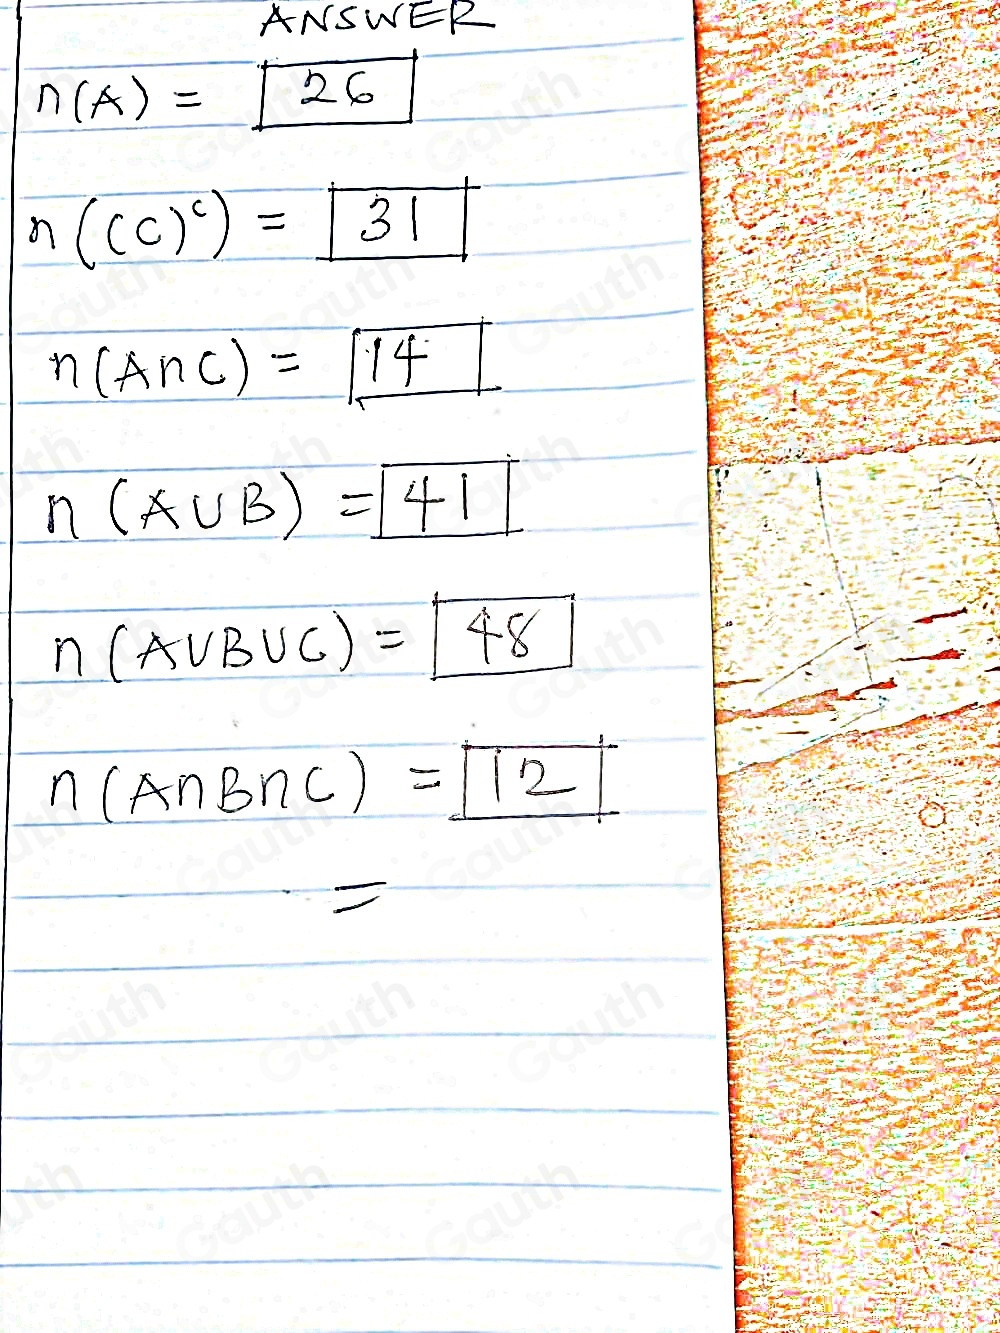 ANSWER
n(A) = 26
n((C)ᶜ) = 31
n(A∩C) = 14
n(A∪B) = 41
n(A∪B∪C) = 48
n(A∩B∩C) = 12
=
Gauth